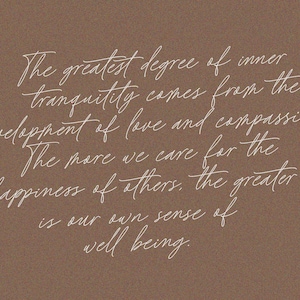 The greatest degree of inner
tranquility comes from the
velopment of love and compassi
The more we care for the
happiness of others, the greater
is our own sense of
well being.